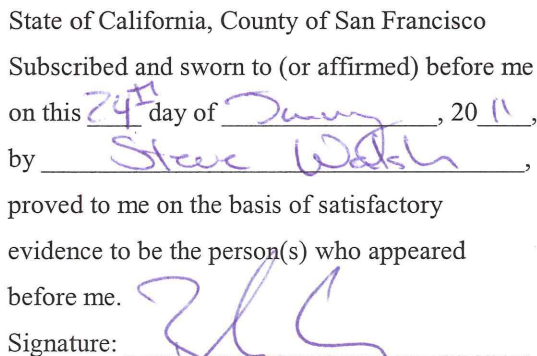 State of California, County of San Francisco
Subscribed and sworn to (or affirmed) before me
on this 24th day of , 20 11,
by Steve Walsh,
proved to me on the basis of satisfactory
evidence to be the person(s) who appeared
before me.
Signature: